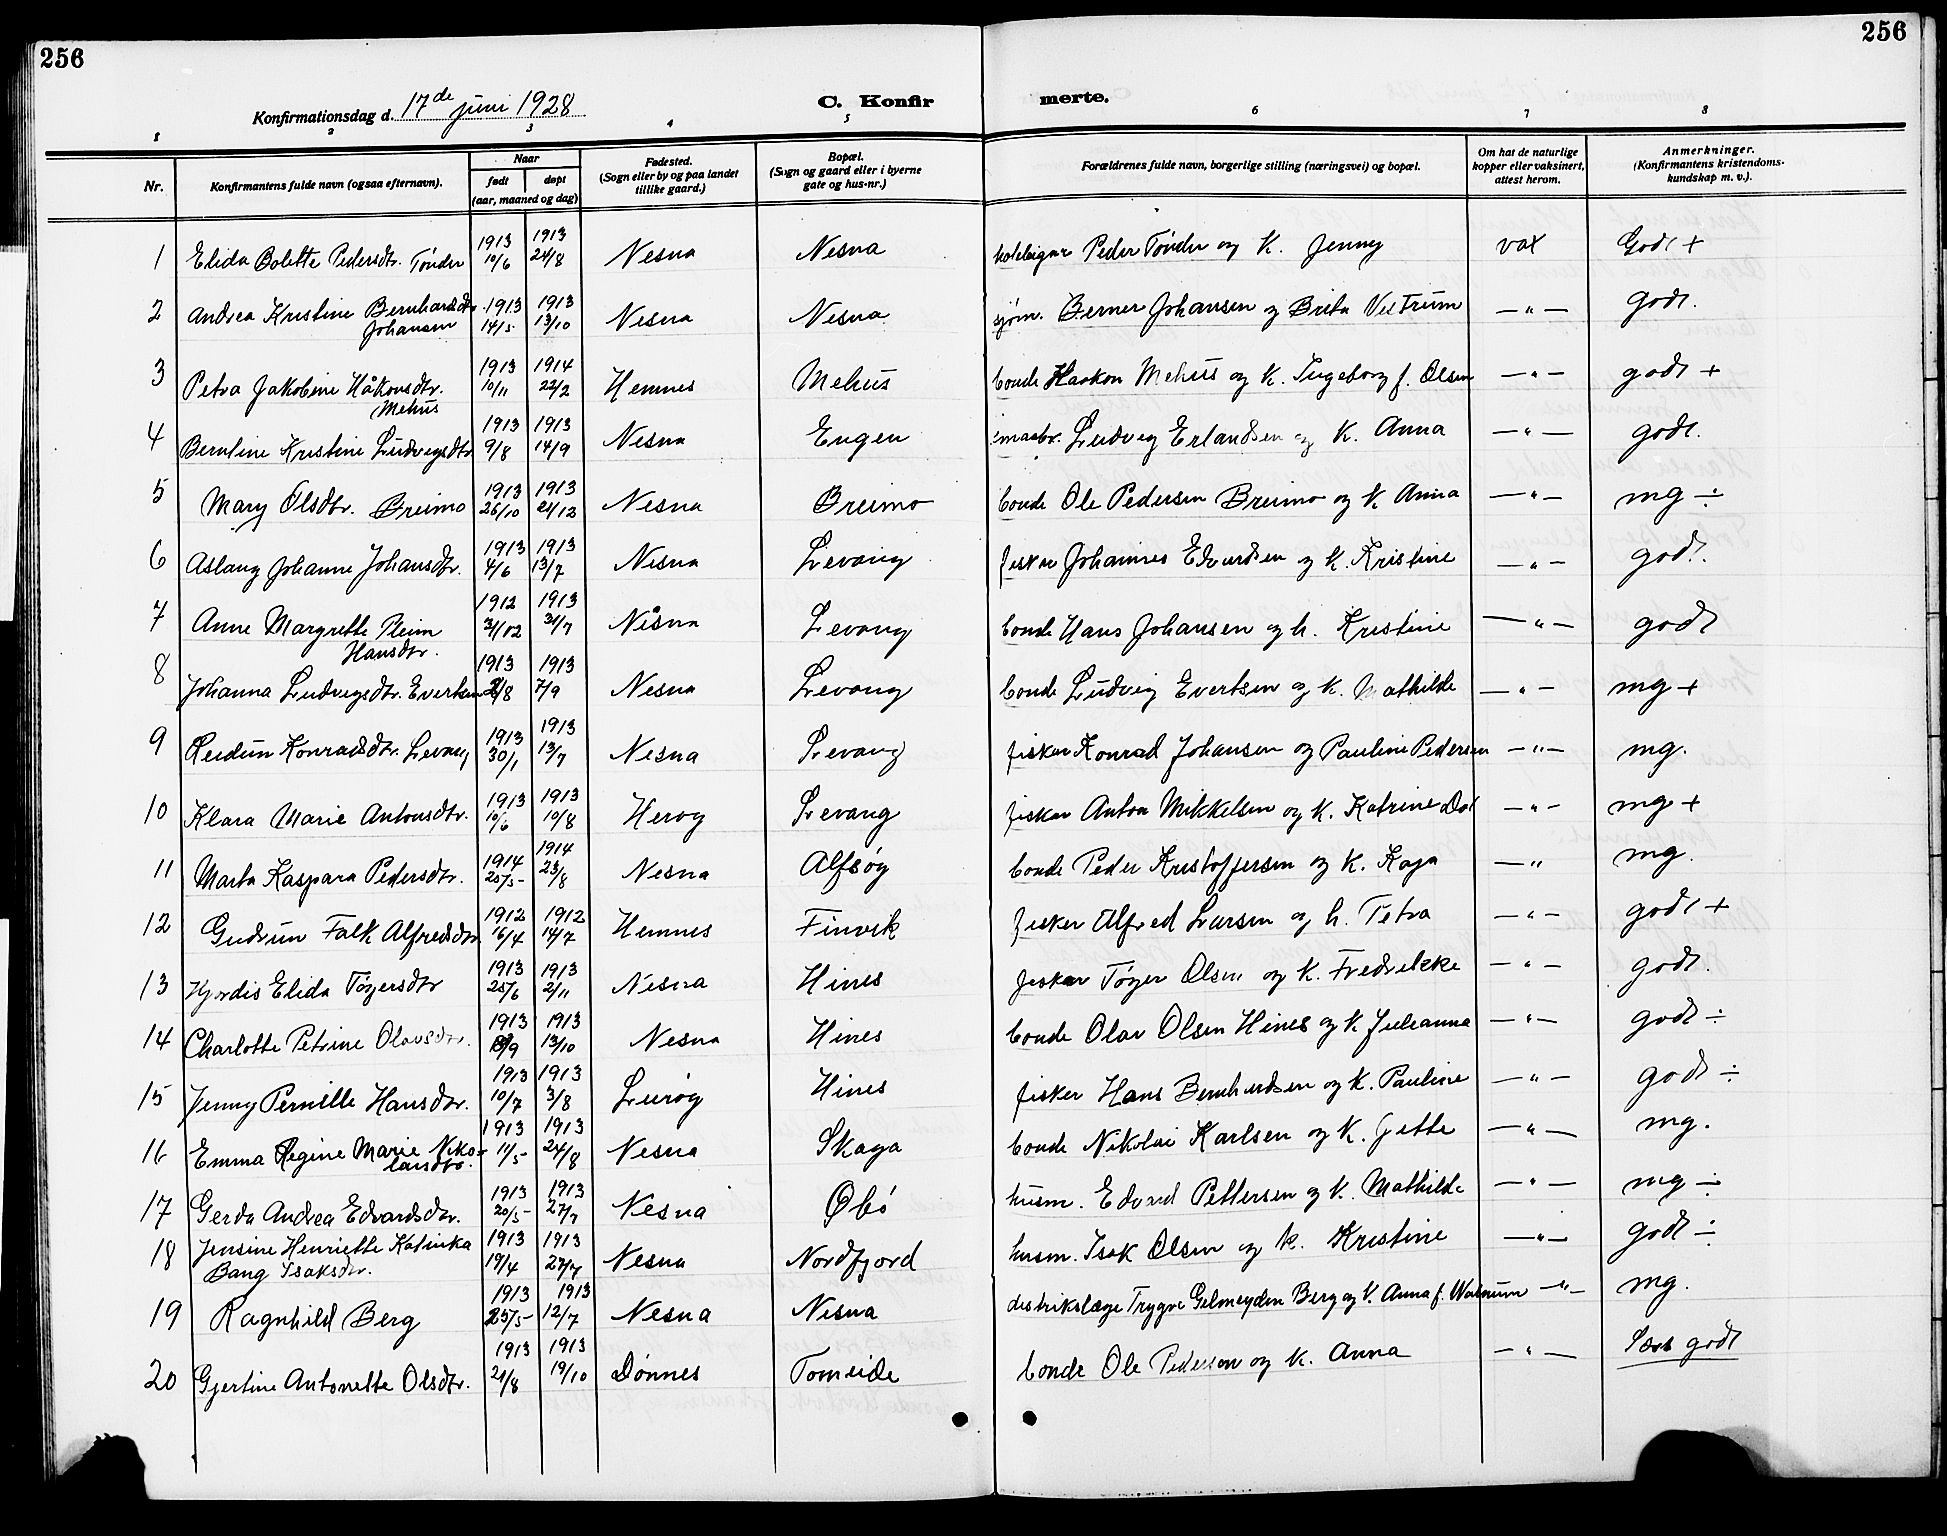 256
256
Konfirmationsdag d. 17de juni 1928
C. Konfirmerte.
1 2 3 4 5 6 7 8
Nr.
Konfirmantens fulde navn (ogsaa efternavn).
Naar
født
døpt
(aar, maaned og dag)
Fødested.
(Sogn eller by og paa landet
tillike gaard.)
Bopæl.
(Sogn og gaard eller i byerne
gate og hus-nr.)
Forældrenes fulde navn, borgerlige stilling (næringsvei) og bopæl.
Om hat de naturlige
kopper eller vaksinert,
attest herom.
Anmerkninger.
(Konfirmantens kristendoms-
kundskap m. v.).
1 Elida Bolette Pedersdtr. Tønder 1913 10/6 1913 24/8 Nesna Nesna Peder Tønder og K. Jenny vax Godt +
2 Andrea Kristine Bernhardsdtr. Johansen 1913 14/5 1913 13/10 Nesna Nesna sjøm. Berner Johansen og Brita Vestrum — " — godt.
3 Petra Jakobine Håkonsdtr. Mehus 1913 10/11 1914 22/2 Hemnes Mehus bonde Haakon Mehus og K. Ingeborg f. Olsen — " — godt +
4 Berntine Kristine Ludvigsdtr 1913 9/8 1913 14/9 Nesna Engen smaabr. Ludvig Erlandsen og K. Anna — " — godt.
5 Mary Olsdtr. Breimo 1913 26/10 1913 24/12 Nesna Breimo bonde Ole Pedersen Breimo og K Anna — " — mg ÷
6 Aslaug Johanne Johansdtr. 1913 4/6 1913 13/7 Nesna Levang fisker Johannes Edvardsen og K. Kristine — " — godt.
7 Anne Margrethe Pleim Hansdtr. 1912 31/12 1913 31/7 Nesna Levang bonde Hans Johansen og h. Kristine — " — godt
8 Johanna Ludvigsdtr. Evertsen 1913 /8 1913 7/9 Nesna Levang bonde Ludvig Evertsen og K. Mathilde — " — mg +
9 Reidun Konradsdtr. Levang 1913 30/1 1913 13/7 Nesna Levang fisker Konrad Johansen og Pauline Pedersen — " — mg.
10 Klara Marie Antonsdtr. 1913 10/6 1913 10/8 Herøy Levang fisker Anton Mikkelsen og K. Katrine Dal — " — mg +
11 Marta Kaspara Pedersdtr. 1914 25/5 1914 23/8 Nesna Alfsøy bonde Peder Kristoffersen og K. Kaja — " mg.
12 Gudrun Falk Alfredsdtr. 1912 16/4 1912 14/7 Hemnes Finvik fisker Alfred Larsen og h. Petra — " — godt +
13 Hjørdis Elida Tøgersdtr 1913 25/6 1913 2/11 Nesna Hines fisker Tøger Olsen og K. Fredrikke — " — godt.
14 Charlotte Petrine Olavsdtr. 1913 /9 1913 13/10 Nesna Hines bonde Olav Olsen Hines og K Julianna — " — godt ÷
15 Jenny Pernille Hansdtr. 1913 10/7 1913 3/8 Lurøy Hines fisker Hans Bernhardsen og K. Pauline — " — godt ÷
16 Emma Regine Marie Nikolaisdtr. 1913 11/5 1913 24/8 Nesna Skaga bonde Nikolai Karlsen og K. Jette — " — mg.
17 Gerda Andrea Edvardsdtr. 1913 20/5 1913 27/7 Nesna Øbø husm. Edvard Pettersen og K. Mathilde — " — mg ÷
18 Jensine Henriette Katinka Bang Isaksdtr. 1913 19/4 1913 27/7 Nesna Nordfjord husm. Isak Olsen og K. Kristine — " — godt ÷
19 Ragnhild Berg 1913 25/5 1913 12/7 Nesna Nesna distrikslæge Trygve Gelmeyden Berg og K. Anna f. Walnum — " — mg.
20 Gjertine Antonette Olsdtr. 1913 21/8 1913 19/10 Dønnes Tomeide bonde Ole Pedersen og K. Anna — " — Særs godt